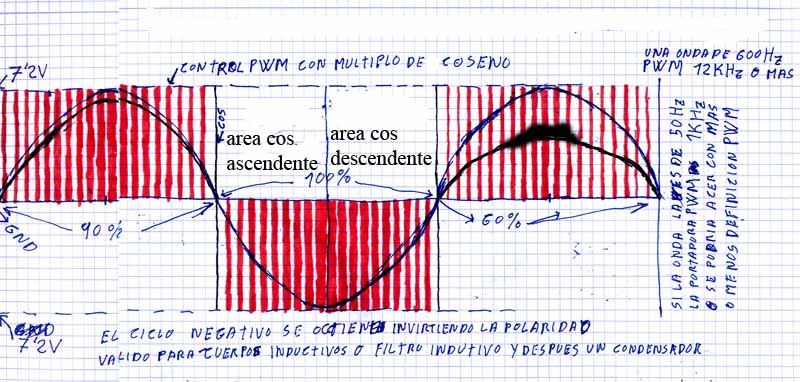 CONTROL PWM CON MULTIPLO DE COSENO
UNA ONDA DE 600HZ
PWM 12KHZ O MAS
7'2V
COS
area cos
ascendente
area cos
descendente
100%
90%
60%
GND
SI LA ONDA ES DE 50HZ
LA PORTADORA PWM 1KHZ
O SE PODRIA ACER CON MAS
O MENOS DEFINICION PWM
7'2V
EL CICLO NEGATIVO SE OCTIENE INVIRTIENDO LA POLARIDAD
VALIDO PARA CUERPOS INDUCTIVOS O FILTRO INDUTIVO Y DESPUES UN CONDENSADOR